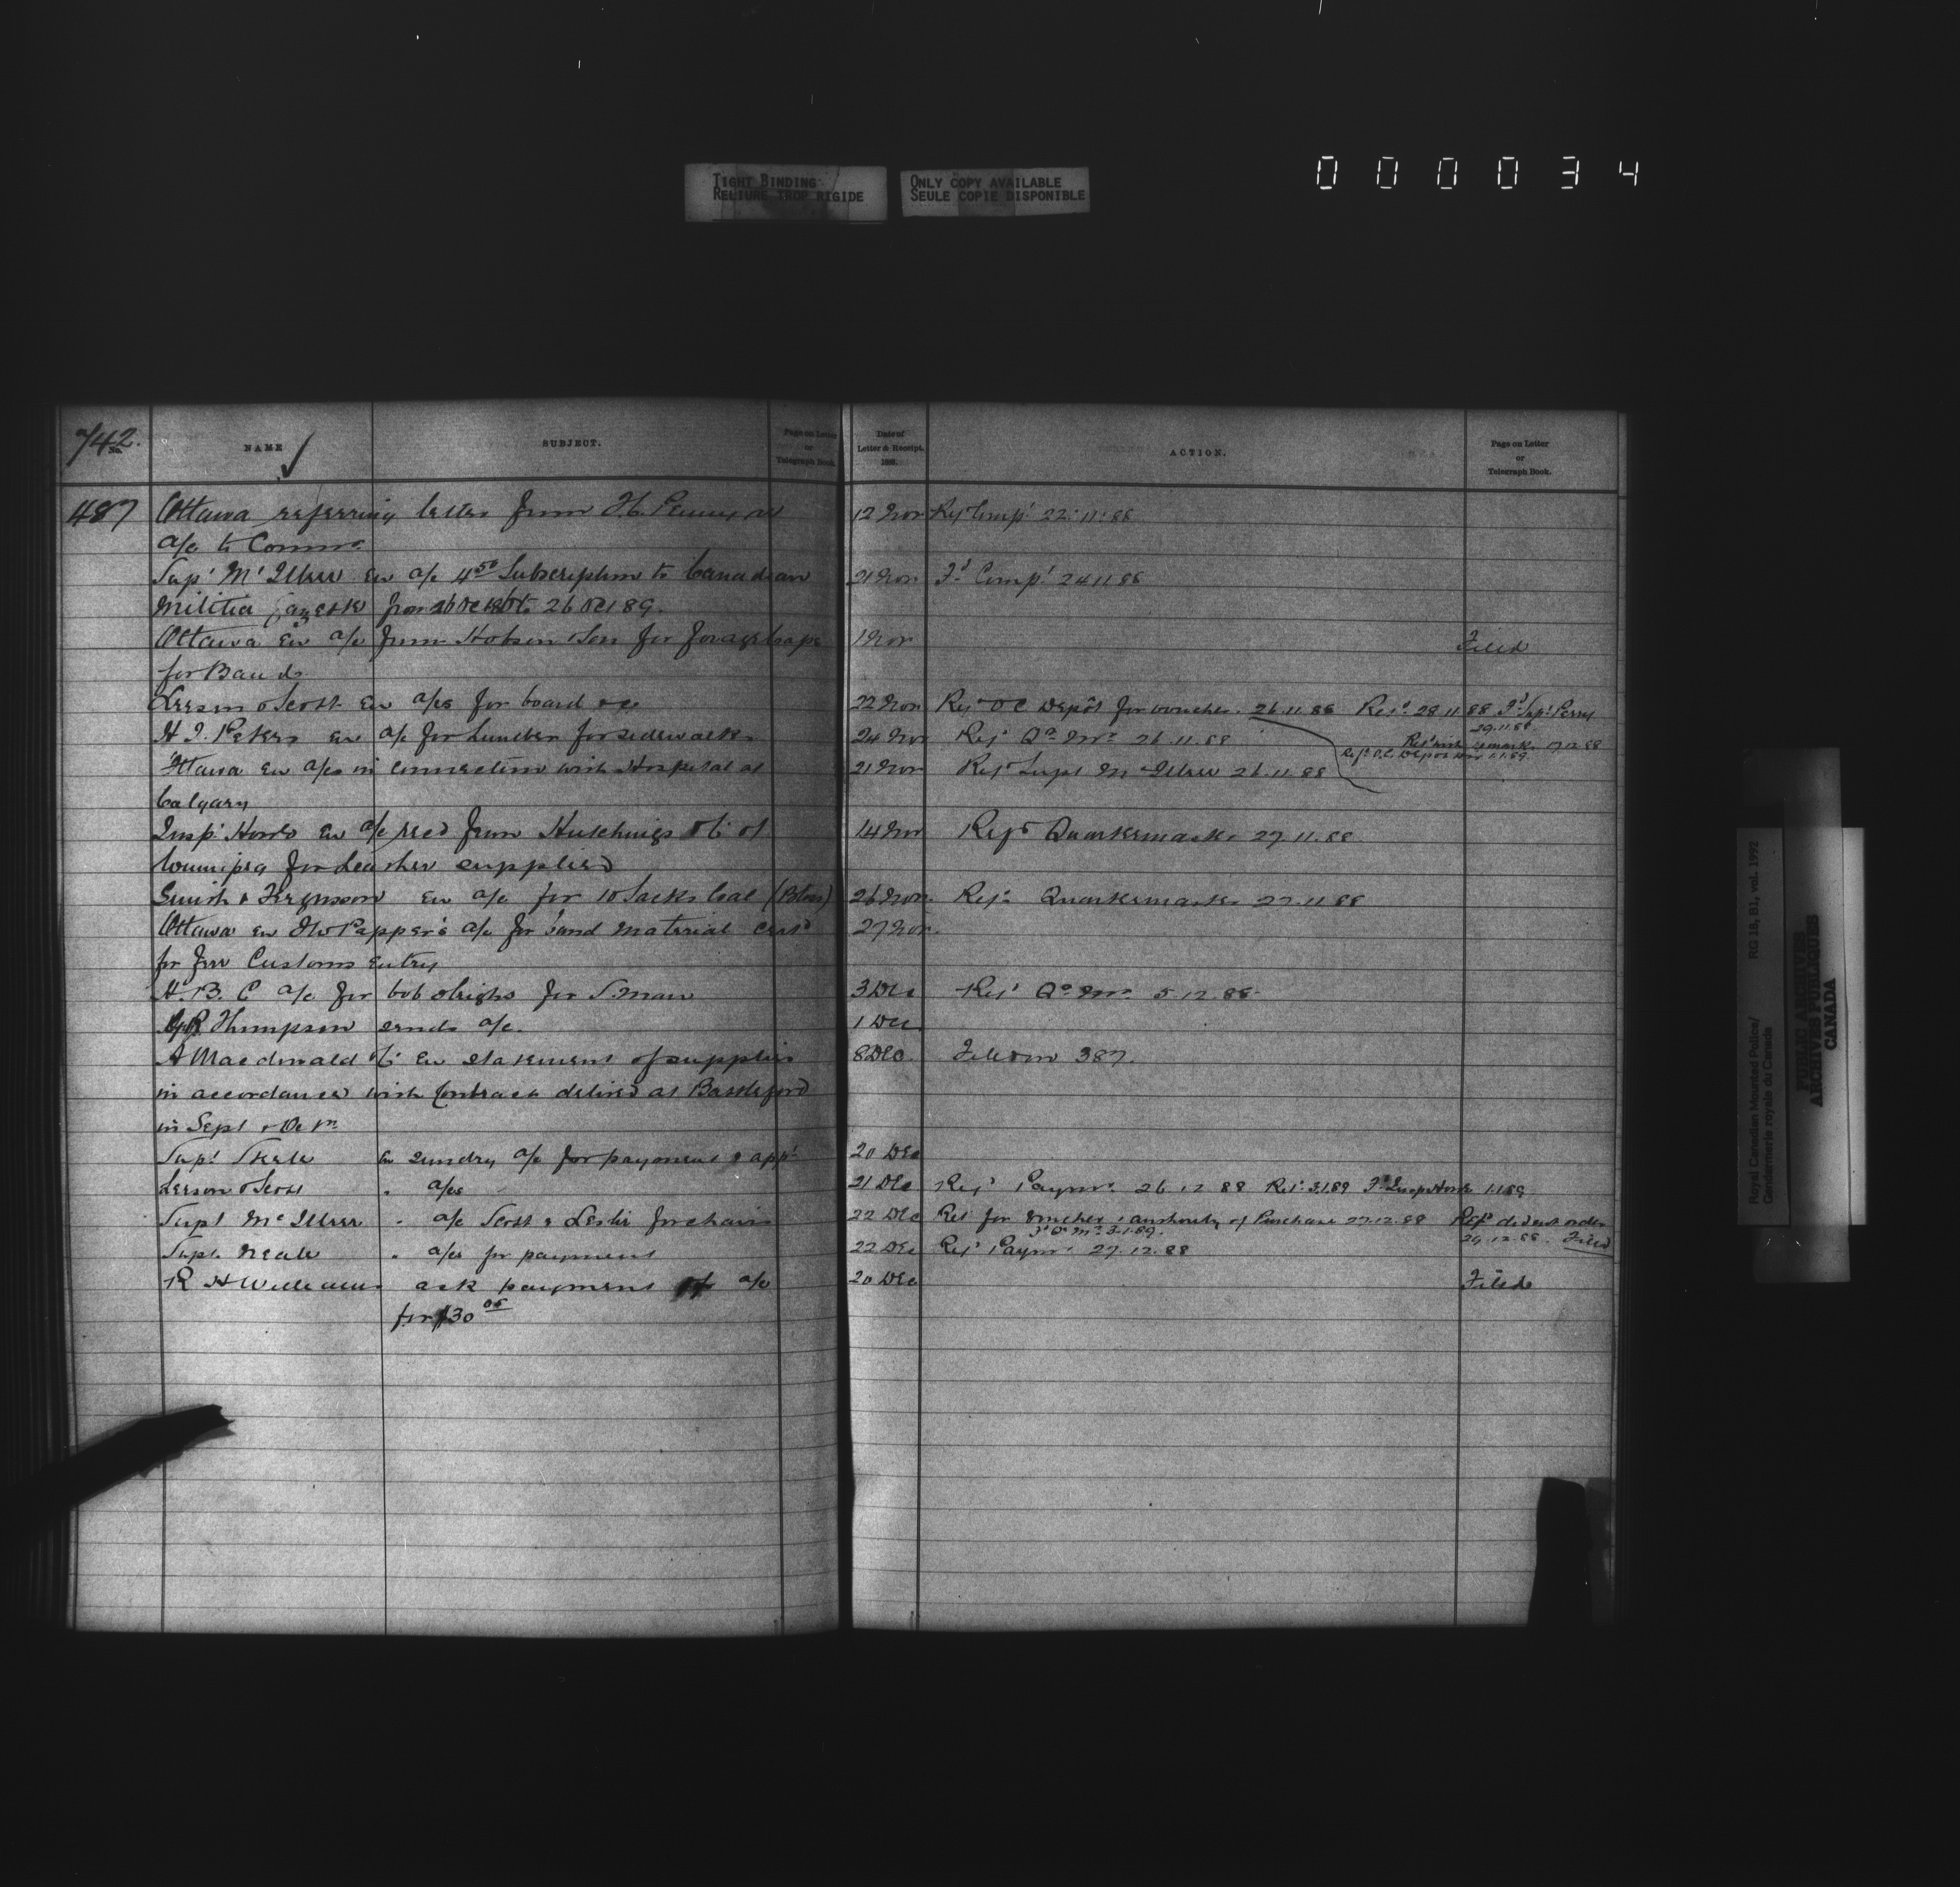 TIGHT BINDING
RELIURE TROP RIGIDE
ONLY COPY AVAILABLE
SEULE COPIE DISPONIBLE
000034
742.
No.
NAME
SUBJECT.
Page on Letter
or
Telegraph Book.
Date of
Letter & Receipt.
188 .
ACTION.
Page on Letter
or
Telegraph Book.
487 Ottawa referring letter from H.C. Penny 12 Nov Refd Compt 22.11.88
a/c to Commr
Supt McIllree En a/c 4.50 Subscription to Canadian 21 Nov Fd Compt 24.11.88
Militia Gazette from 26 Oct 88 to 26 Oct 89.
Ottawa En a/c from Hobson & Son for forage caps 1 Nov Filed
for Band
Leeson & Scott En a/cs for board &c 22 Nov Refd O C Depôt for voucher 26.11.88 Retd 28.11.88 Fd Supt Perry
29.11.88
H J. Peters En a/c for lumber for sidewalk 24 Nov Refd Qr Mr 26.11.88
Ottawa En a/cs in connection with Hospital at 21 Nov Refd Supt McIllree 26.11.88
Calgary
Insp Howe En a/c recd from Hutchings & Co of 14 Nov Refd Quartermaster 27.11.88
Winnipeg for leather supplied
Smith & Fergusson En a/c for 10 Sacks Coal (Blos) 26 Nov. Refd Quartermaster 27.11.88
Ottawa En Papper's a/c for band material 27 Nov.
for free Customs Entry
H. B. C a/c for bob sleighs for S. 3 Dec Refd Qr Mr 5.12.88
Thompson sends a/c. 1 Dec
A Macdonald & Co En statement of supplies 8 Dec. Filed on 387.
in accordance with Contract delivd at Battleford
in Sept & Oct
Supt Steele En sundry a/c for payment & appl 20 Dec
Leeson & Scott " a/cs 21 Dec Refd Paymr 26.12.88 Retd 3.1.89
Supt McIllree " a/c Scott & Leslie for chairs 22 Dec Ret for voucher & authority of Purchase 27.12.88
Fd Qr Mr 3.1.89.
29.12.88. Filed
Supt. Neale " a/cs for payment 22 Dec Refd Paymr 27.12.88
R H Williams ask payment of a/c 20 Dec Filed
for $30
Royal Canadian Mounted Police/
Gendarmerie royale du Canada
RG 18, B1, vol. 1992
PUBLIC ARCHIVES
ARCHIVES PUBLIQUES
CANADA